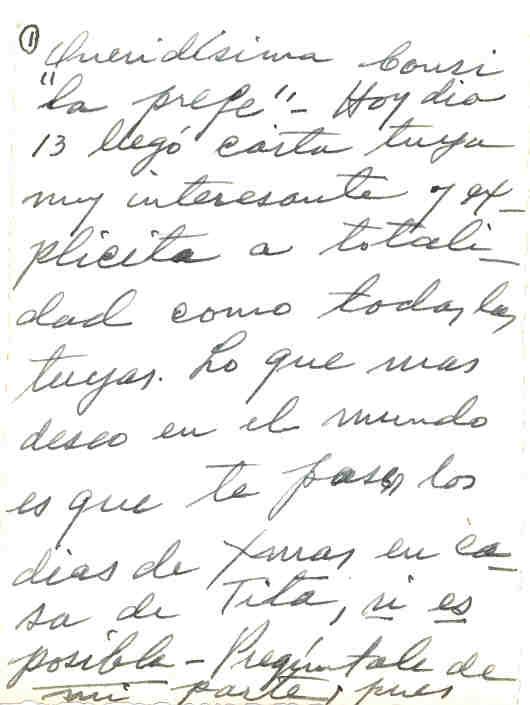 1
Queridísima Consi
"la prefe" - Hoy dia
13 llegó carta tuya
muy interesante y ex-
plicita a totali-
dad como todas las
tuyas. Lo que mas
deseo en el mundo
es que te pases los
dias de Xmas en ca-
sa de Tita, si es
posible - Pregúntale de
mi parte, pues